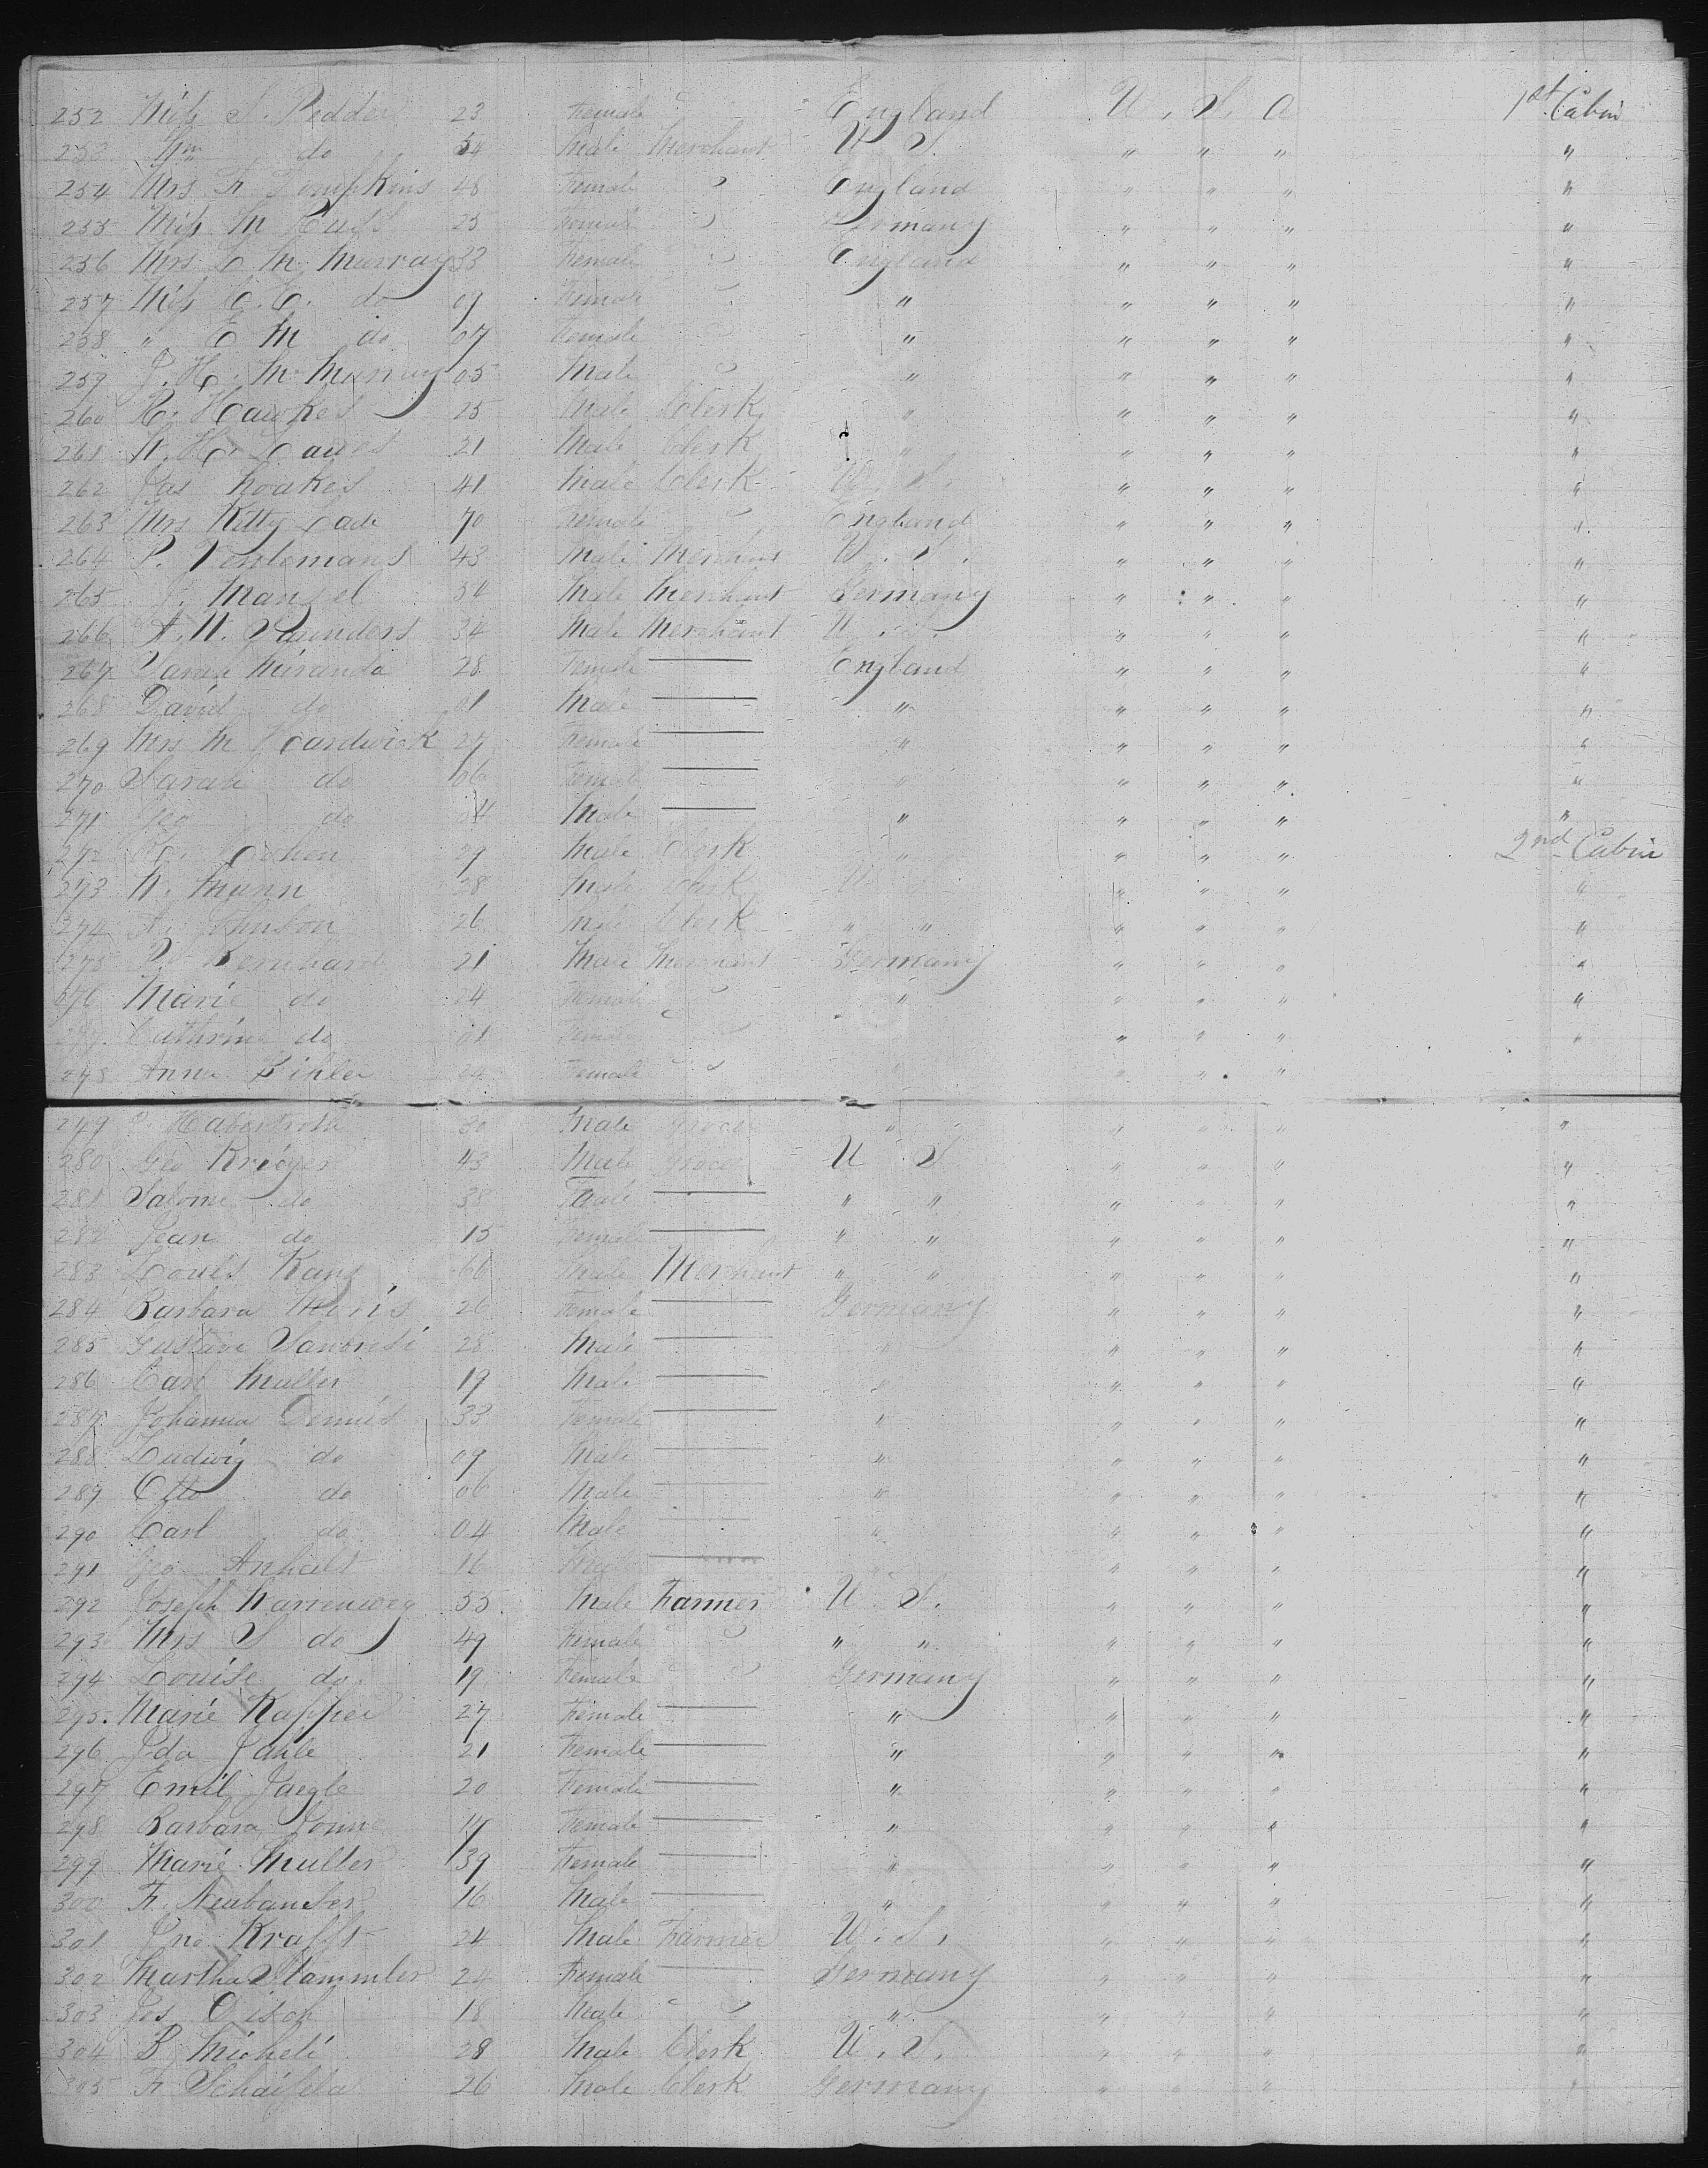 252 Miss S. Pedder 23 Female England U. S. A 1st Cabin
253 Wm do 54 Male Merchant U S. " " " "
254 Mrs F. Tompkins 48 Female England " " " "
255 Miss M 25 Female Germany " " " "
256 Mrs L. M. Murray 33 Female England " " " "
257 Miss C. C. do 09 Female " " " " "
258 " E M do 07 Female " " " " "
259 J. H. Mc Murray 05 Male " " " " "
260 R. Hawkes 25 Male Clerk " " " " "
261 W. H. Lawes 21 Male Clerk " " " " "
262 Jas Noakes 41 Male Clerk U S. " " " "
263 Mrs Kitty Cade 70 Female England " " " "
264 P. 43 Male Merchant U. S. " " " "
265 J. Mansel 34 Male Merchant Germany " " " "
266 A. W. Saunders 34 Male Merchant U. S. " " " "
267 Miranda 28 Female — England " " " "
268 David do 01 Male — " " " " "
269 Mrs M Hardwick 27 Female — " " " " "
270 Sarah do 06 Female — " " " " "
271 Geo do 04 Male — " " " " "
272 Cohen 29 Male Clerk " " " " 2nd Cabin
273 W. Mann 28 Male Clerk U " " " "
274 A. Johnson 26 Male Clerk " " " " " "
275 P. Bernhard 21 Male Merchant Germany " " " "
276 Marie do 24 Female " " " " "
277 Cathrine do 01 Female " " " "
278 Anna Bihler Female " " " "
279 Haberstroh 30 Male Grocer " " " " "
280 Geo Krieger 43 Male Grocer U S " " " "
281 Salome do 38 — " " " " " "
282 Jean do 15 Female — " " " " " "
283 Louis Kanz 66 Male Merchant " " " " " "
284 Barbara 26 Female — Germany " " " "
285 Gustave 28 Male — " " " " "
286 Carl Muller 19 Male — " " " " "
287 Johanna Dennis 33 Female — " " " " "
288 Ludwig do 09 Male — " " " " "
289 Otto do 06 Male — " " " " "
290 Carl do 04 Male — " " " " "
291 Geo Anhalt 16 Male — " " " "
292 Joseph 55 Male Farmer U. S. " " " "
293 Mrs S do 49 Female " " " " " "
294 Louise do 19 Female Germany " " " "
295 Marie Kapper 27 Female — " " " " "
296 Ida Jahle 21 Female — " " " " "
297 Emil Jaegle 20 Female — " " " " "
298 Barbara Female — " " " " "
299 Marie Muller 39 Female — " " " " "
300 F. 16 Male — " " " " "
301 Jno Krafft 24 Male Farmer U. S. " " " "
302 Martha Stammler 24 Female — Germany " " " "
303 Jos 18 Male " " " " "
304 B Micheli 28 Male Clerk U. S. " " " "
305 F. 26 Male Clerk Germany " " " "